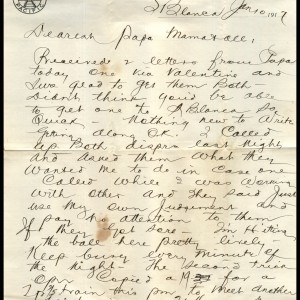 St Blanca Jan 10, 1917
Dearest Papa Mama & all:
Received 2 letters from Papa
today one via Valentine and
was glad to get them Both
Didn't think you'd be able
to get one to St Blanca So
Quick. Nothing new to write
getting along OK. I Called
up Both disprs last night
and Asked them what they
wanted me to do in case one
Called while I was working
with other and they said just
use my own judgement and
pay no attention to them
if they got sore. Im Hitting
the ball here pretty lively
Keep busy every minute of
the night. The second trick
Opr Copied a 19 for a
train this pm to meet another